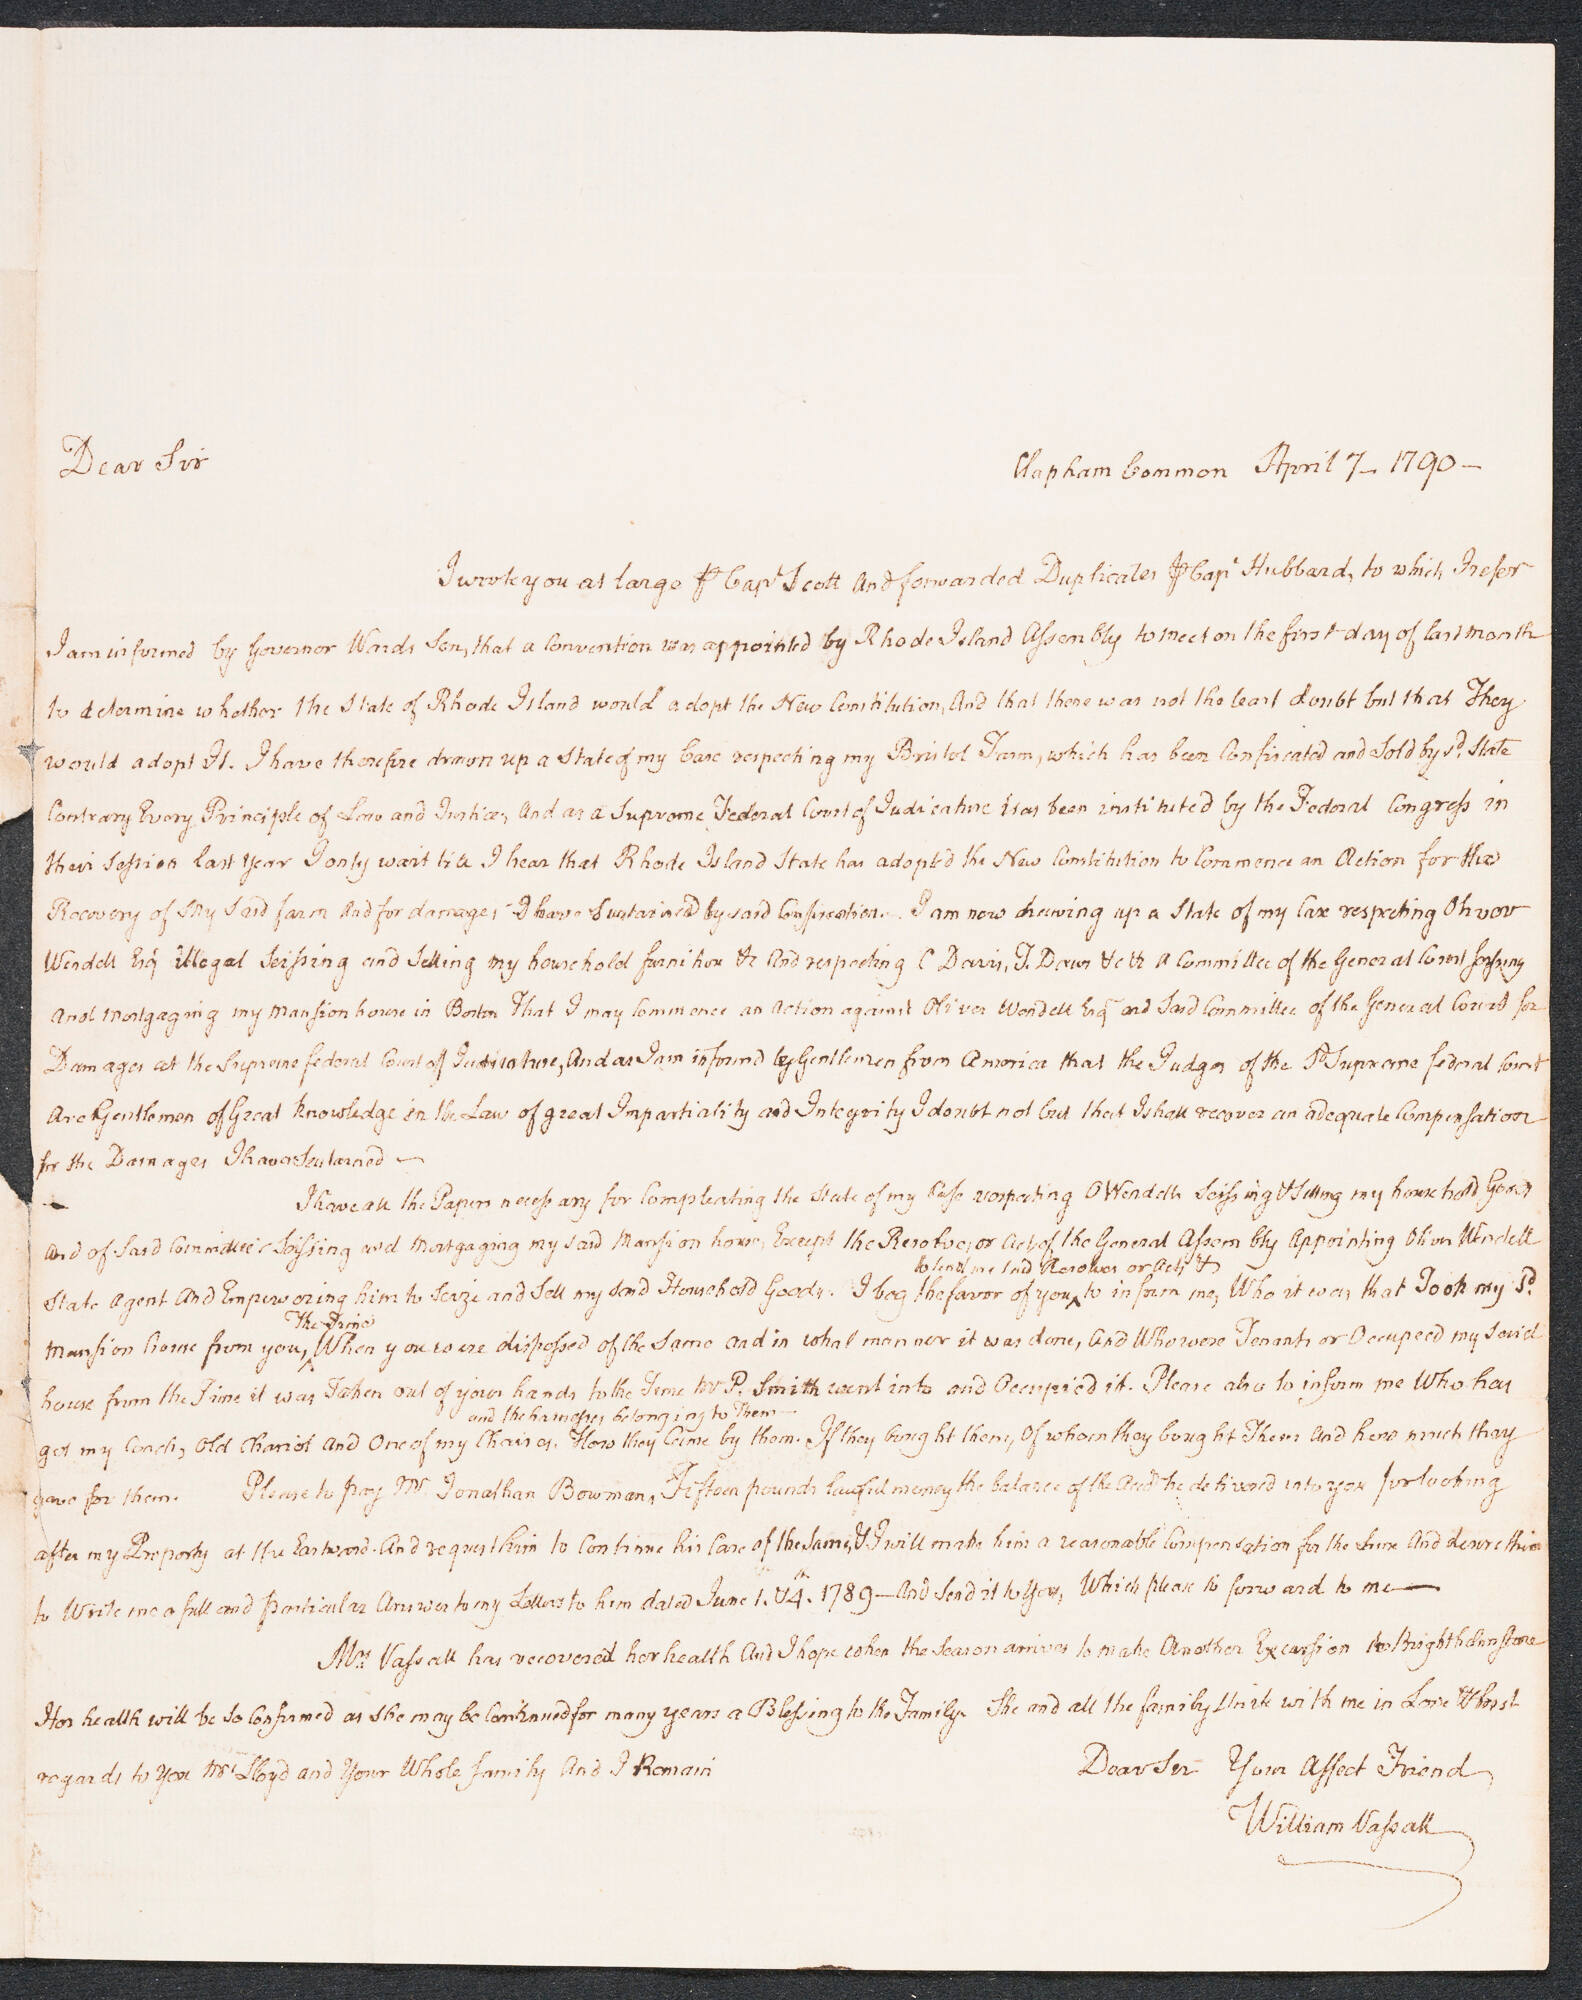 Dear Sir
Clapham Common April 7 - 1790 -
I wrote you at large ⅌ Capt Scott And forwarded Duplicates ⅌ Capt Hubbard, to which I refer
I am informed by Governor Wards Son, that a Convention was appointed by Rhode Island Assembly to meet on the first day of last month
to determine whether the State of Rhode Island would adopt the New Constitution, And that there was not the least doubt but that They
would adopt It. I have therefore drawn up a State of my Case respecting my Bristol Farm, which has been Confiscated and Sold by sd. State
Contrary Every Principle of Law and Justice, And as a Supreme Federal Court of Judicature has been instituted by the Federal Congress in
their Session last Year I only wait till I hear that Rhode Island State has adopted the New Constitution to Commence an Action for the
Recovery of My Said farm And for damages I have Sustained by said Confiscation. I am now drawing up a State of my Case respecting Oliver
Wendell Esqr illegal Seissing and Selling my household furniture &c And respecting C Davis, T. Daws &c &c a Committee of the General Court Seissing
and mortgaging my Mansion house in Boston That I may Commence an Action against Oliver Wendell Esqr and Said Committee of the General Court for
Damages at the Supreme federal Court of Judicature, And as I am informd by Gentlemen from America that the Judges of the Sd Supreme federal Court
Are Gentlemen of Great Knowledge in the Law of great Impartiality and Integrity I doubt not but that I shall recover an adequate Compensation
for the Damages I have Sustained
I have all the Papers necessary for Compleating the State of my Case respecting O Wendells Seissing & Selling my household Goods
and of Said Committee's Seissing and Mortgaging my said Mansion house, Except the Resolves or Acts of the General Assembly Appointing Oliver Wendell
to send me said Resolves or Acts &
State Agent And Empowering him to Seize and Sell my said Household Goods. I beg the favor of you ^ to inform me, Who it was that Took my Sd.
The Time
Mansion house from you, ^ When you were disposesed of the Same and in what manner it was done, And Who were Tenants or Occupied my said
house from the Time it was Taken out of your hands to the Time Mr P. Smith went into and Occupied it. Please also to inform me Who has
and the harnesses belonging to Them
got my Coach, Old Chariot And One of my Chaises. How they Came by them. If they bought them, Of whom they bought Them And how much they
gave for them. Please to pay Mr. Jonathan Bowman, Fifteen pounds lawful money the balance of the Acct he delivered into you for looking
after my Property at the Eastward. And request him to Continue his Care of the Same, & I will make him a reasonable Compensation for the Same And desire him
to Write me a full and particular Answer to my Letters to him dated June 1. & 4. 1789 - And Send it to You, Which please to forward to me
Mrs Vassall has recovered her health And I hope when the Season arrives to make Another Excursion to Brighthelmstone
Her health will be so Confirmed as she may be Continued for many years a Blessing to the Family. She and all the family Unite with me in Love & best
regards to You Mrs Lloyd and Your Whole family And I Remain
Dear Sir Your Affect Friend
William Vassall